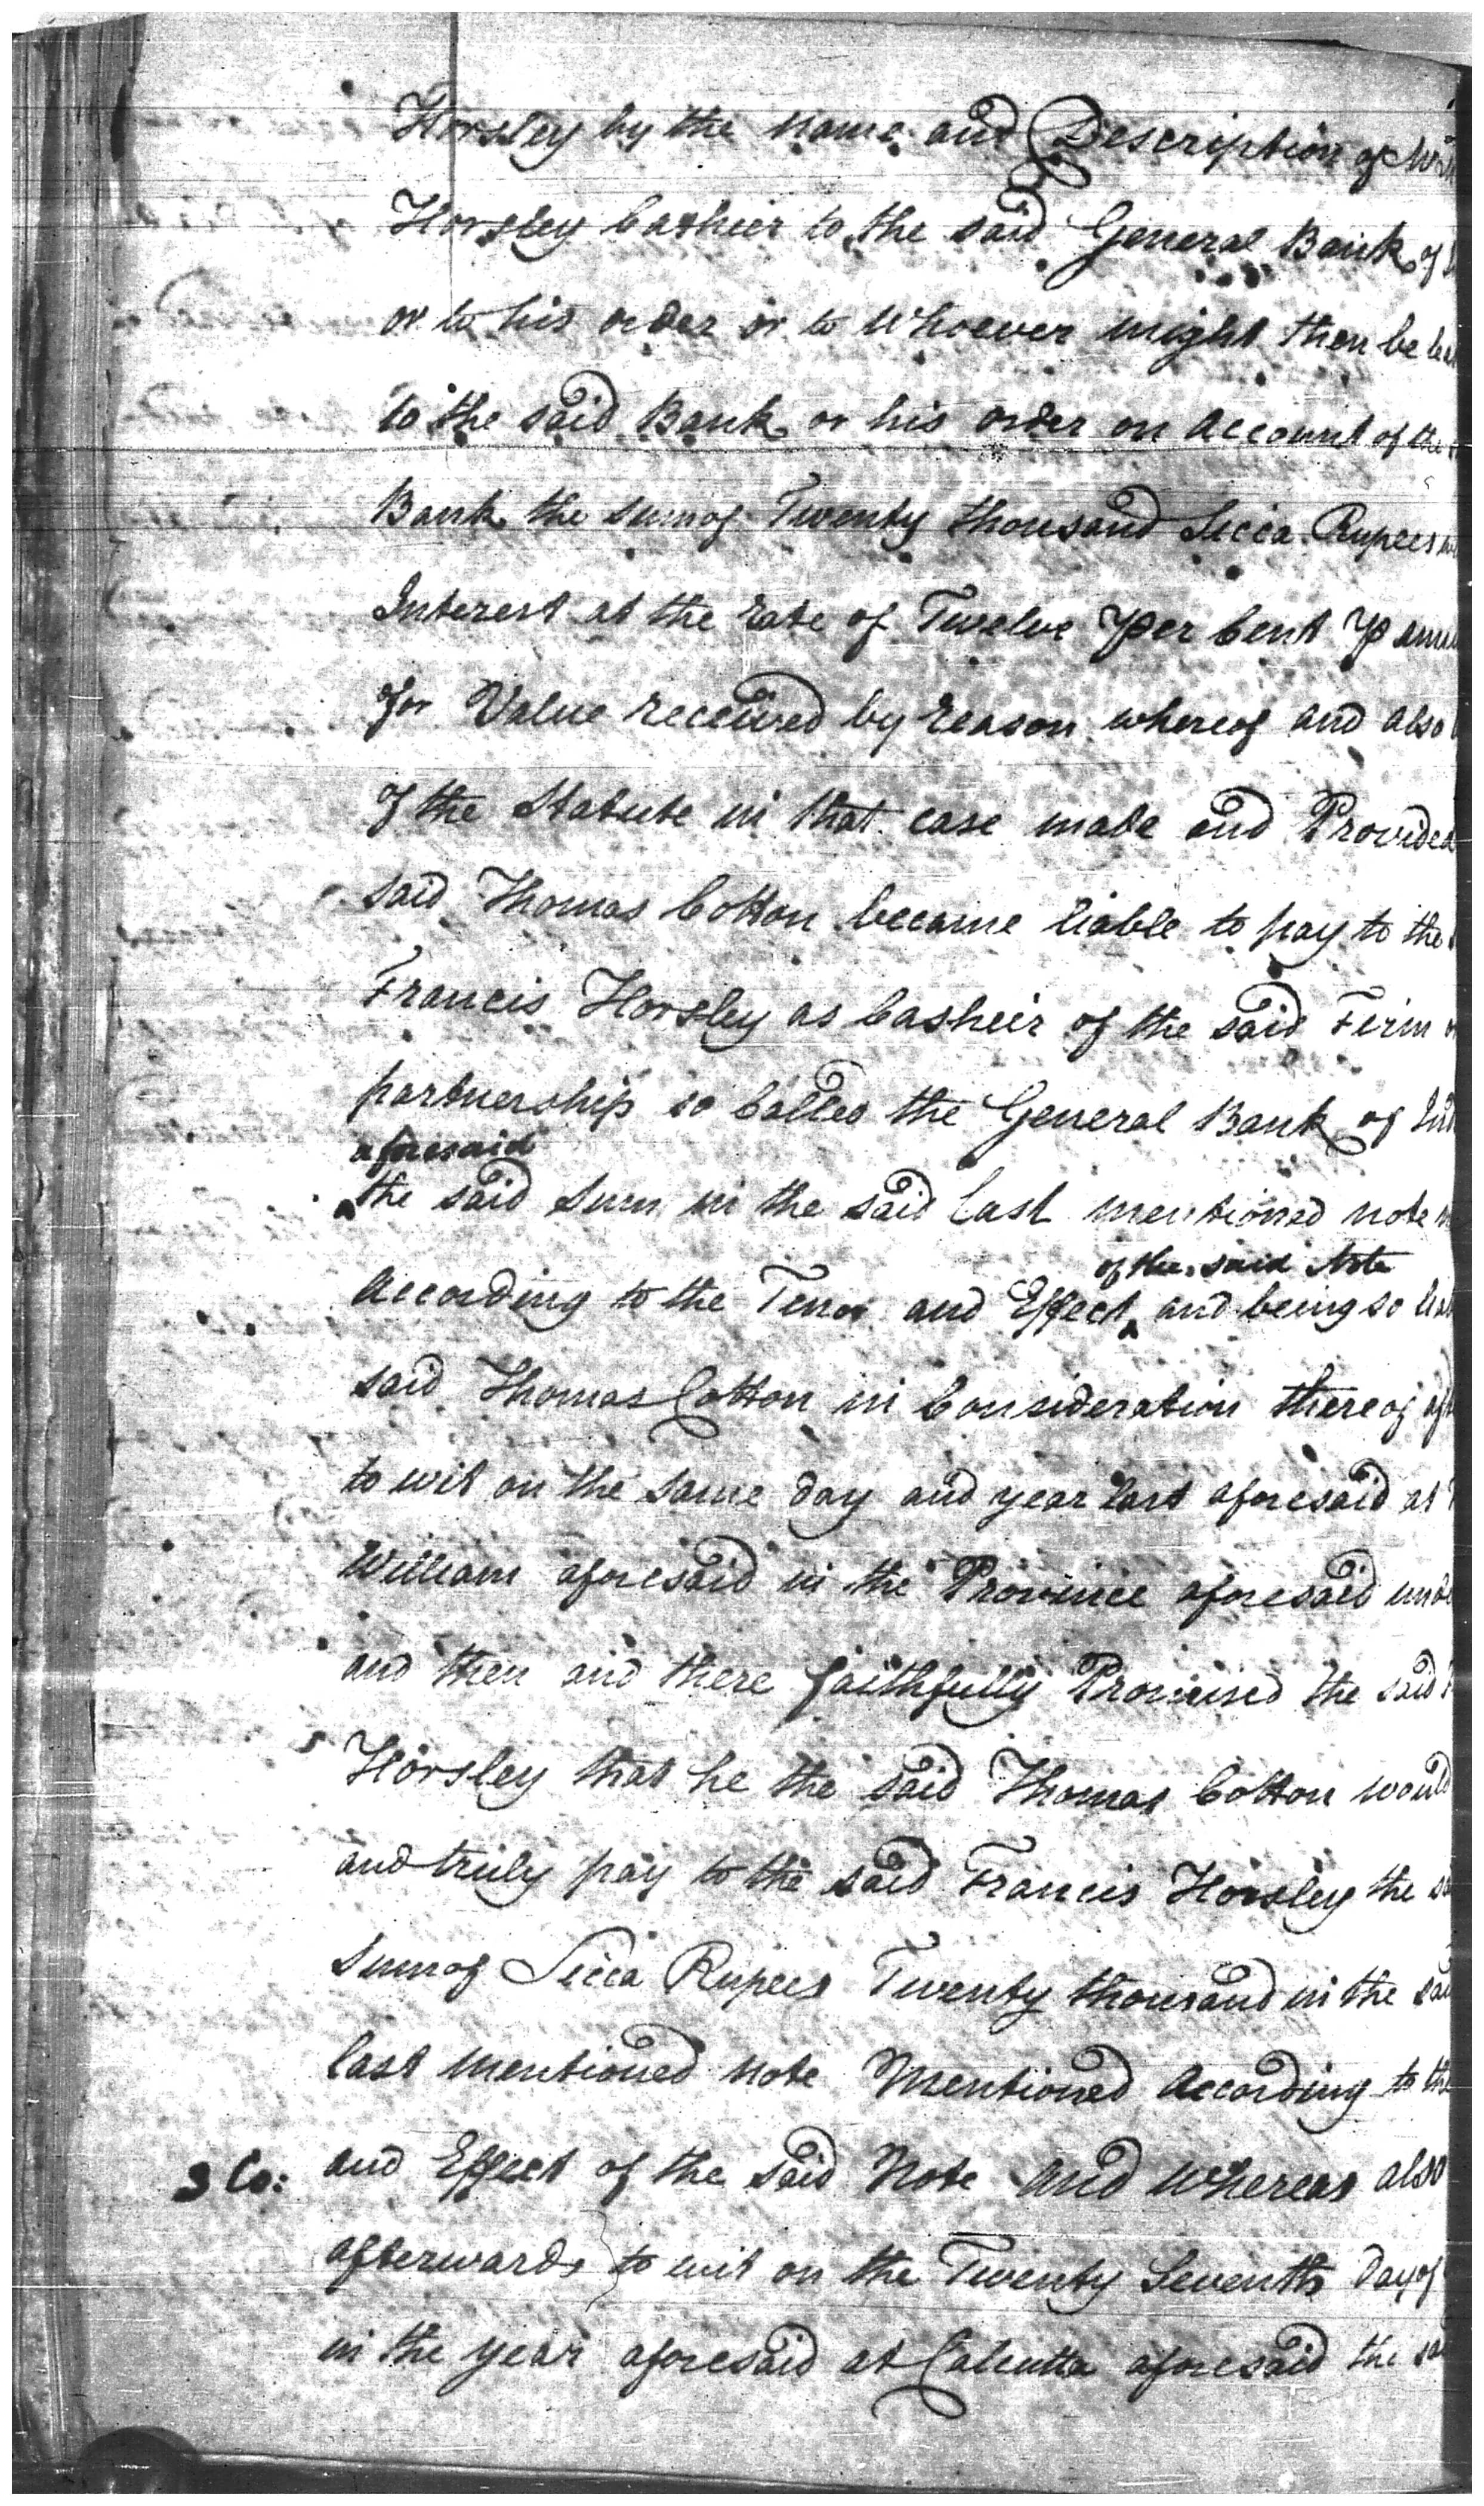 Horsley by the name and Description of Mr
Horsley Casheir to the said General Bank of
or to his order or to Whoever might then be
to the said Bank or his order on Account of the
Bank the sum of Twenty thousand Sicca Rupees
Interest at the rate of Twelve Per Cent P annu
for Value received by reason whereof and also
of the Statute in that case made and Provided
said Thomas Cotton became liable to pay to the
Francis Horsley as Casheir of the said Firm
partnership so Called the General Bank of Ind
aforesaid
the said Sum in the said last mentioned note
of the said Note
According to the Tenor and Effect and being so
said Thomas Cotton in Consideration thereof
to wit on the same day and year last aforesaid at
William aforesaid in the Province aforesaid und
and then and there faithfully Promised the said
Horsley that he the said Thomas Cotton would
and truly pay to the said Francis Horsley the
Sum of Sicca Rupees Twenty thousand in the sai
last mentioned note Mentioned According to the
3 Co: and Effect of the said Note And Whereas also
afterwards to wit on the Twenty Seventh Day of
in the year aforesaid at Calcutta aforesaid the